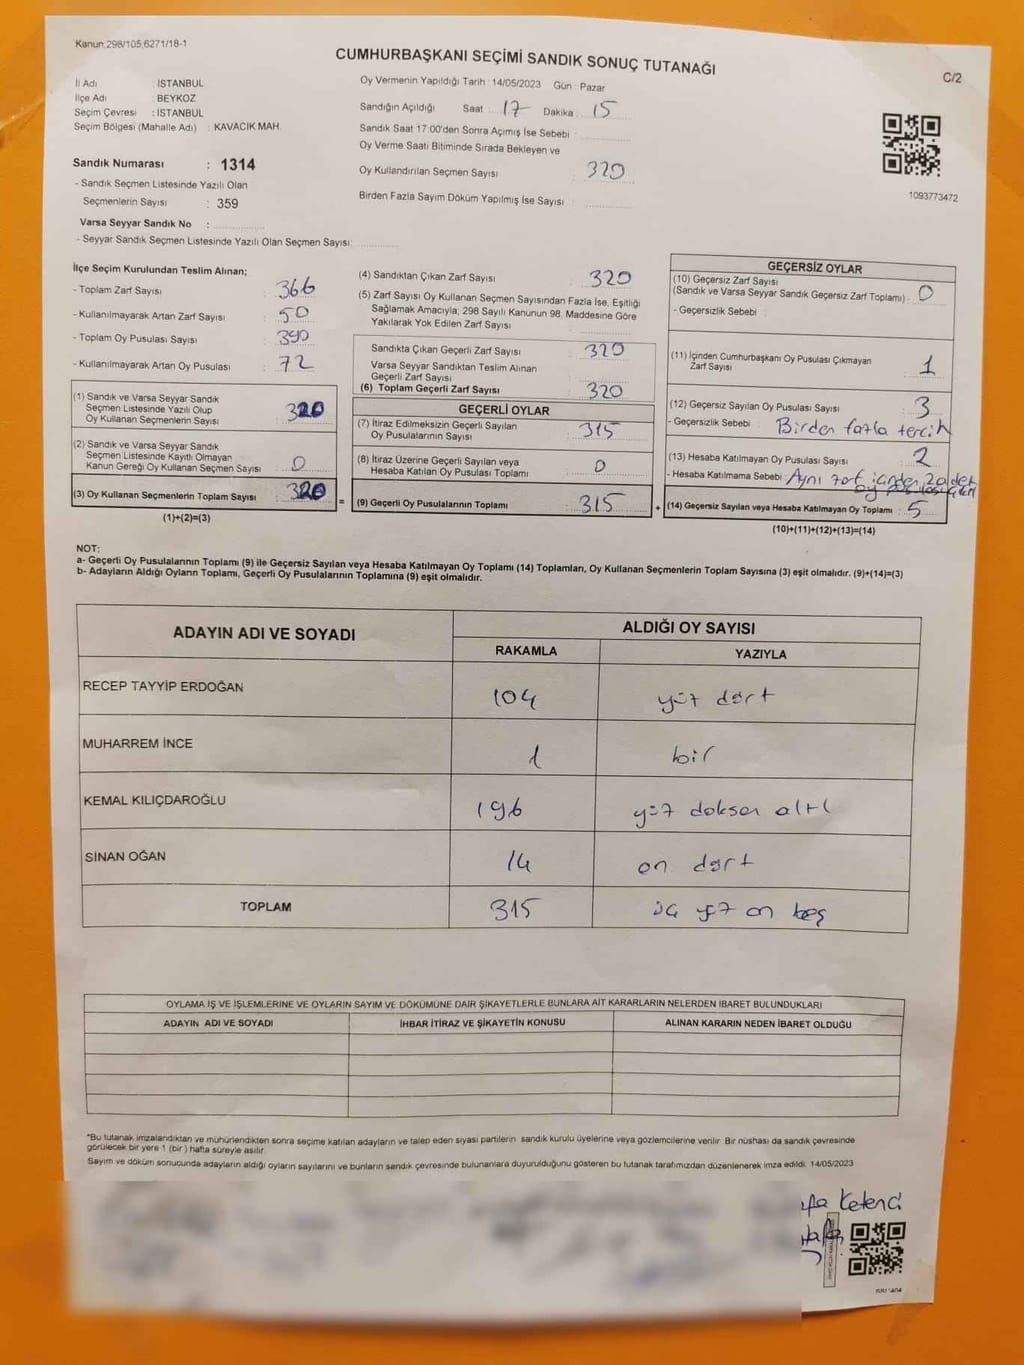 Kanun:298/105,6271/18-1
CUMHURBAŞKANI SEÇİMİ SANDIK SONUÇ TUTANAĞI
C/2
İl Adı : İSTANBUL
İlçe Adı : BEYKOZ
Seçim Çevresi : İSTANBUL
Seçim Bölgesi (Mahalle Adı) : KAVACIK MAH.
Sandık Numarası : 1314
- Sandık Seçmen Listesinde Yazılı Olan
Seçmenlerin Sayısı : 359
Varsa Seyyar Sandık No :
- Seyyar Sandık Seçmen Listesinde Yazılı Olan Seçmen Sayısı:
Oy Vermenin Yapıldığı Tarih : 14/05/2023 Gün : Pazar
Sandığın Açıldığı Saat : 17 Dakika : 15
Sandık Saat 17:00'den Sonra Açımış İse Sebebi :
Oy Verme Saati Bitiminde Sırada Bekleyen ve
Oy Kullandırılan Seçmen Sayısı : 320
Birden Fazla Sayım Döküm Yapılmış İse Sayısı :
1093773472
İlçe Seçim Kurulundan Teslim Alınan;
- Toplam Zarf Sayısı : 366
- Kullanılmayarak Artan Zarf Sayısı : 50
- Toplam Oy Pusulası Sayısı : 390
- Kullanılmayarak Artan Oy Pusulası : 72
(1) Sandık ve Varsa Seyyar Sandık
Seçmen Listesinde Yazılı Olup
Oy Kullanan Seçmenlerin Sayısı : 320
(2) Sandık ve Varsa Seyyar Sandık
Seçmen Listesinde Kayıtlı Olmayan
Kanun Gereği Oy Kullanan Seçmen Sayısı : 0
(3) Oy Kullanan Seçmenlerin Toplam Sayısı : 320
(1)+(2)=(3)
=
(4) Sandıktan Çıkan Zarf Sayısı : 320
(5) Zarf Sayısı Oy Kullanan Seçmen Sayısından Fazla İse, Eşitliği
Sağlamak Amacıyla; 298 Sayılı Kanunun 98. Maddesine Göre
Yakılarak Yok Edilen Zarf Sayısı :
Sandıkta Çıkan Geçerli Zarf Sayısı : 320
Varsa Seyyar Sandıktan Teslim Alınan
Geçerli Zarf Sayısı :
(6) Toplam Geçerli Zarf Sayısı : 320
GEÇERLİ OYLAR
(7) İtiraz Edilmeksizin Geçerli Sayılan
Oy Pusulalarının Sayısı : 315
(8) İtiraz Üzerine Geçerli Sayılan veya
Hesaba Katılan Oy Pusulası Toplamı : 0
(9) Geçerli Oy Pusulalarının Toplamı : 315
+
GEÇERSİZ OYLAR
(10) Geçersiz Zarf Sayısı
(Sandık ve Varsa Seyyar Sandık Geçersiz Zarf Toplamı) : 0
- Geçersizlik Sebebi :
(11) İçinden Cumhurbaşkanı Oy Pusulası Çıkmayan
Zarf Sayısı : 1
(12) Geçersiz Sayılan Oy Pusulası Sayısı : 3
- Geçersizlik Sebebi : Birden fazla tercih
(13) Hesaba Katılmayan Oy Pusulası Sayısı : 2
- Hesaba Katılmama Sebebi : Aynı zarf içinden 2 adet
oy pusulası
(14) Geçersiz Sayılan veya Hesaba Katılmayan Oy Toplamı : 5
(10)+(11)+(12)+(13)=(14)
NOT:
a- Geçerli Oy Pusulalarının Toplamı (9) ile Geçersiz Sayılan veya Hesaba Katılmayan Oy Toplamı (14) Toplamları, Oy Kullanan Seçmenlerin Toplam Sayısına (3) eşit olmalıdır. (9)+(14)=(3)
b- Adayların Aldığı Oyların Toplamı, Geçerli Oy Pusulalarının Toplamına (9) eşit olmalıdır.
ADAYIN ADI VE SOYADI
ALDIĞI OY SAYISI
RAKAMLA YAZIYLA
RECEP TAYYİP ERDOĞAN 104 yüz dört
MUHARREM İNCE 1 bir
KEMAL KILIÇDAROĞLU 196 yüz doksan altı
SİNAN OĞAN 14 on dört
TOPLAM 315 üç yüz on beş
OYLAMA İŞ VE İŞLEMLERİNE VE OYLARIN SAYIM VE DÖKÜMÜNE DAİR ŞİKAYETLERLE BUNLARA AİT KARARLARIN NELERDEN İBARET BULUNDUKLARI
ADAYIN ADI VE SOYADI İHBAR İTİRAZ VE ŞİKAYETİN KONUSU ALINAN KARARIN NEDEN İBARET OLDUĞU
*Bu tutanak imzalandıktan ve mühürlendikten sonra seçime katılan adayların ve talep eden siyasi partilerin sandık kurulu üyelerine veya gözlemcilerine verilir. Bir nüshası da sandık çevresinde
görülecek bir yere 1 (bir) hafta süreyle asılır.
Sayım ve döküm sonucunda adayların aldığı oyların sayılarını ve bunların sandık çevresinde bulunanlara duyurulduğunu gösteren bu tutanak tarafımızdan düzenlenerek imza edildi. 14/05/2023
Ketenci